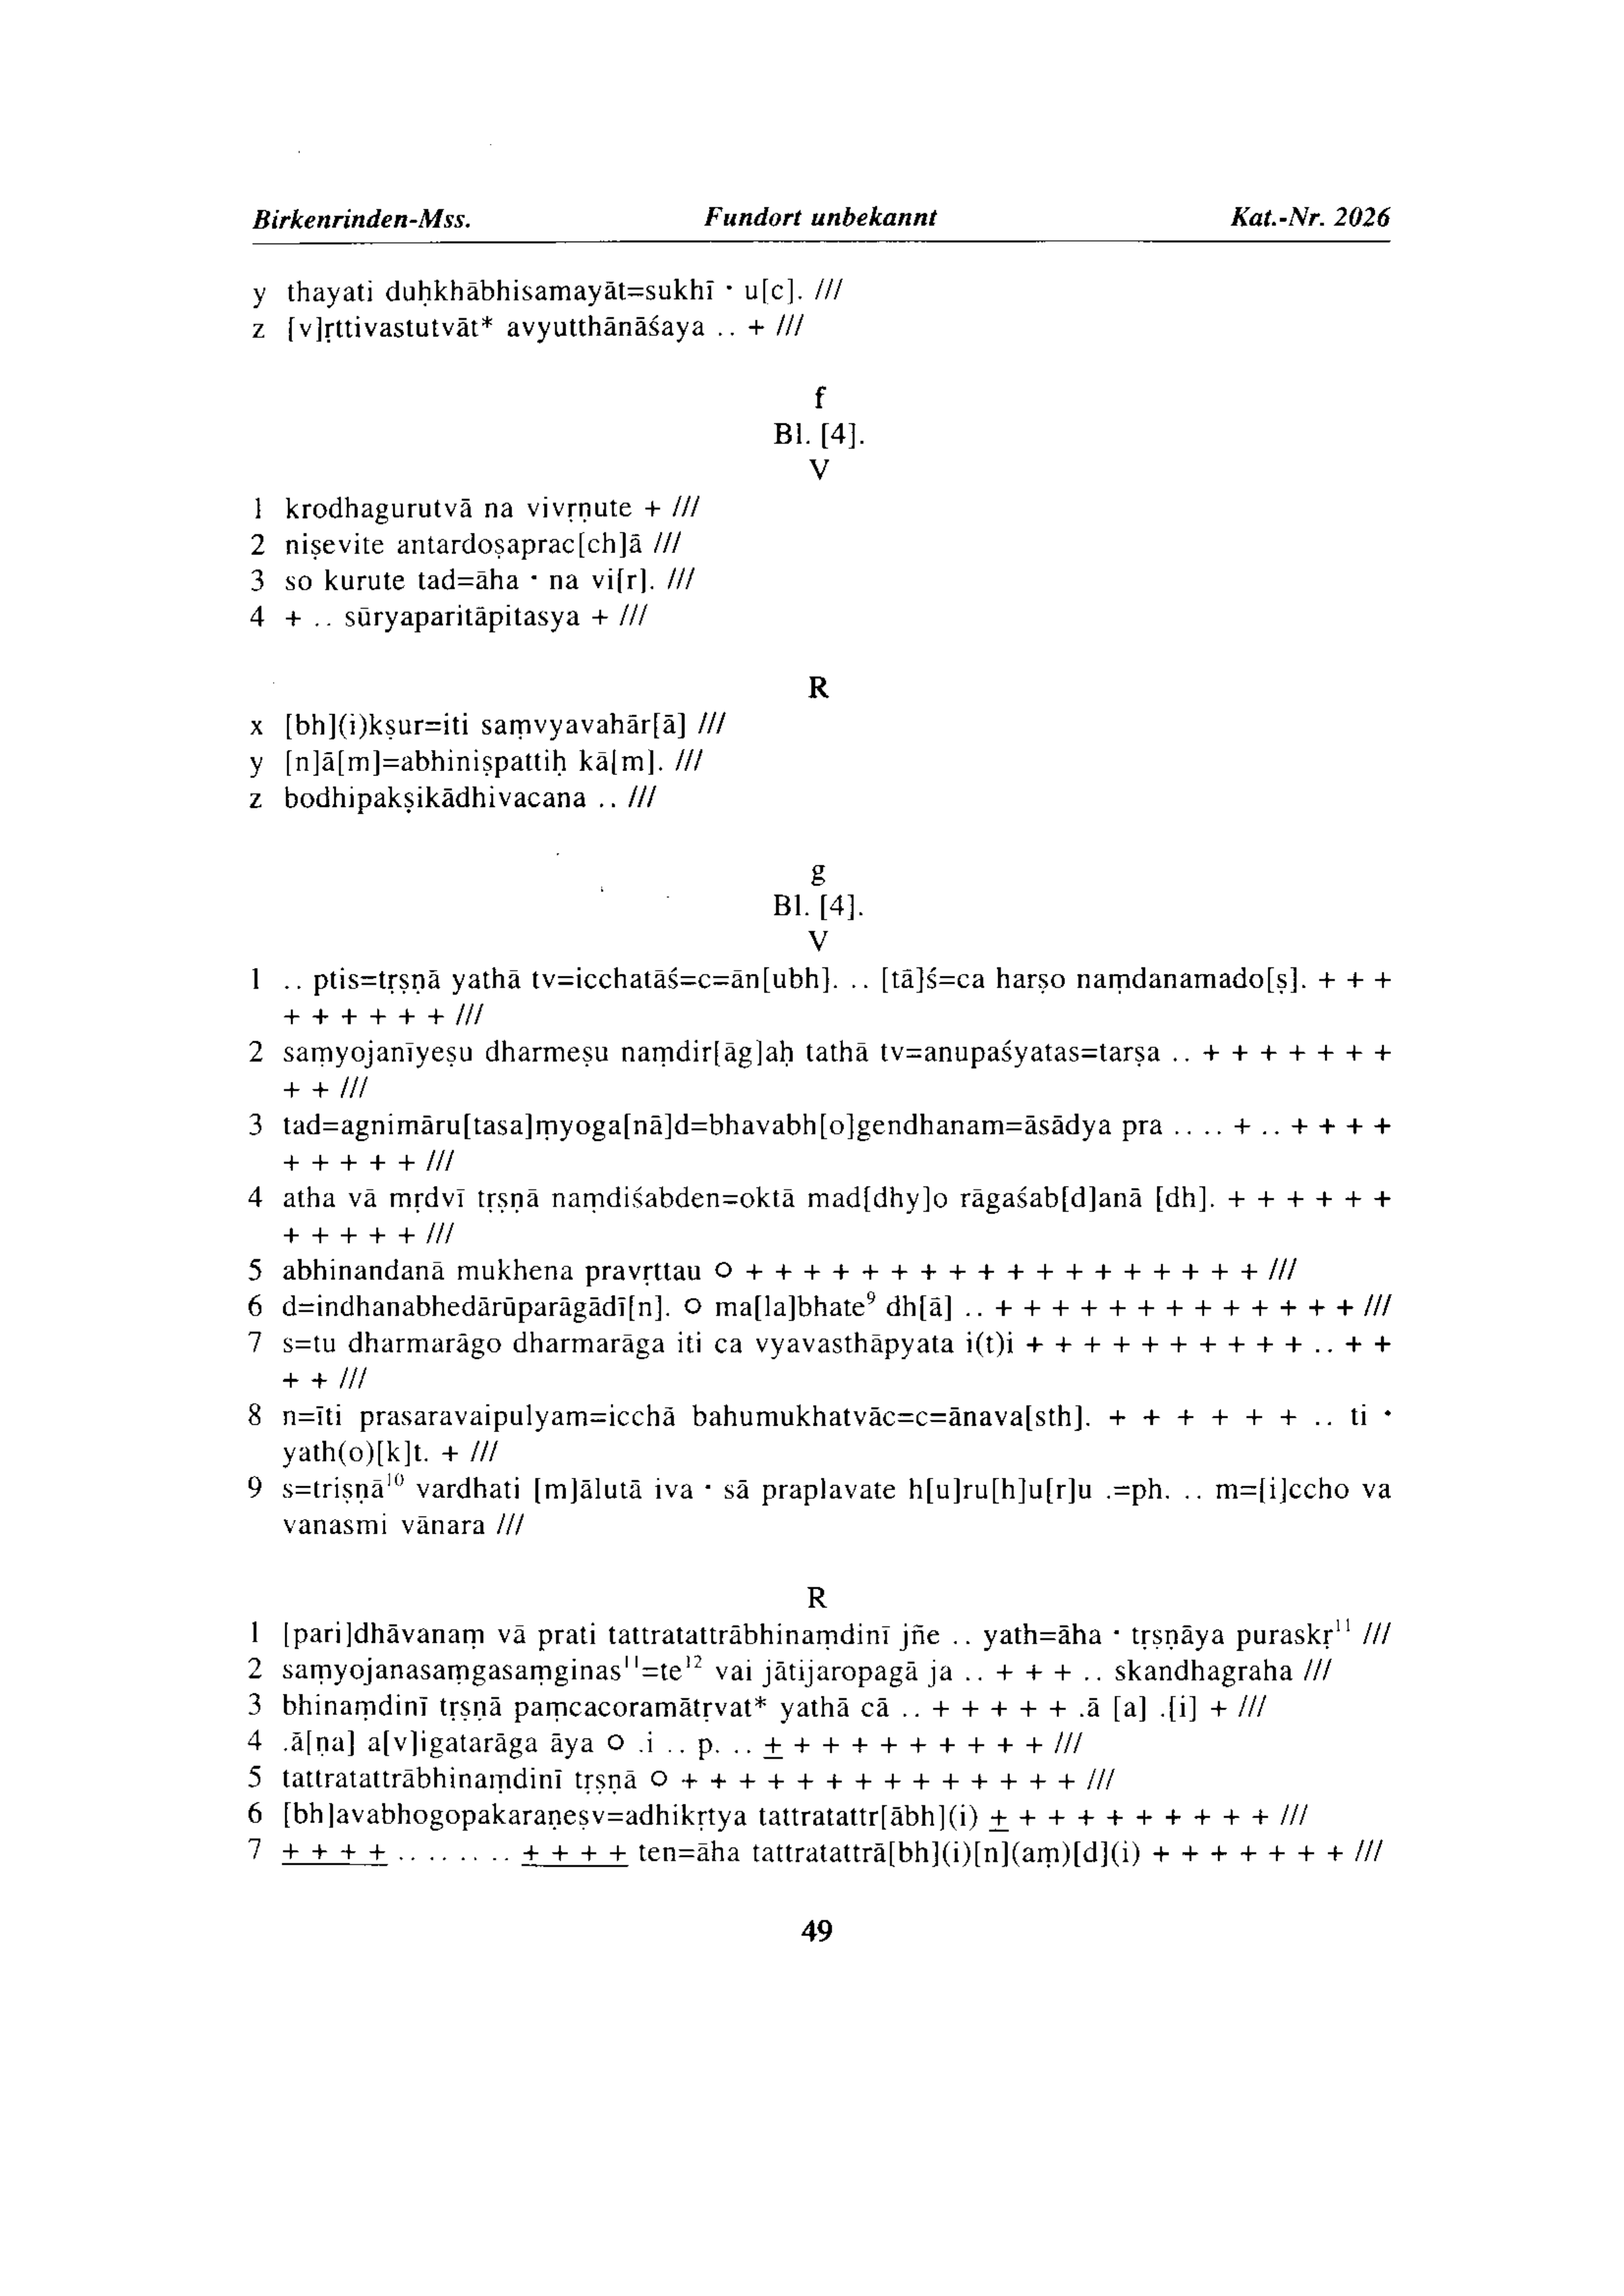 Birkenrinden-Mss. Fundort unbekannt Kat.-Nr. 2026
y thayati duḥkhābhisamayāt=sukhī · u[c]. ///
z [v]ṛttivastutvāt* avyutthānāśaya .. + ///
f
Bl. [4].
V
1 krodhagurutvā na vivṛṇute + ///
2 niṣevite antardoṣaprac[ch]ā ///
3 so kurute tad=āha · na vi[r]. ///
4 + .. sūryaparitāpitasya + ///
R
x [bh](i)kṣur=iti saṃvyavahār[ā] ///
y [n]ā[m]=abhiniṣpattiḥ kā[m]. ///
z bodhipakṣikādhivacana .. ///
g
Bl. [4].
V
1 .. ptis=tṛṣṇā yathā tv=icchatāś=c=ān[ubh]. .. [tā]ś=ca harṣo naṃdanamado[ṣ]. + + +
+ + + + + + ///
2 saṃyojanīyeṣu dharmeṣu naṃdir[āg]aḥ tathā tv=anupaśyatas=tarṣa .. + + + + + + +
+ + ///
3 tad=agnimāru[tasa]ṃyoga[nā]d=bhavabh[o]gendhanam=āsādya pra .. .. + .. + + + +
+ + + + + ///
4 atha vā mṛdvī tṛṣṇā naṃdiśabden=oktā mad[dhy]o rāgaśab[d]anā [dh]. + + + + + +
+ + + + + ///
5 abhinandanā mukhena pravṛttau ○ + + + + + + + + + + + + + + + + + + ///
6 d=indhanabhedārūparāgādī[n]. ○ ma[la]bhate⁹ dh[ā] .. + + + + + + + + + + + + + ///
7 s=tu dharmarāgo dharmarāga iti ca vyavasthāpyata i(t)i + + + + + + + + + + .. + +
+ + ///
8 n=īti prasaravaipulyam=icchā bahumukhatvāc=c=ānava[sth]. + + + + + + .. ti ·
yath(o)[k]t. + ///
9 s=triṣṇā¹⁰ vardhati [m]ālutā iva · sā praplavate h[u]ru[h]u[r]u .=ph. .. m=[i]ccho va
vanasmi vānara ///
R
1 [pari]dhāvanaṃ vā prati tattratattrābhinaṃdinī jñe .. yath=āha · tṛṣṇāya puraskṛ¹¹ ///
2 saṃyojanasaṃgasaṃginas¹¹=te¹² vai jātijaropagā ja .. + + + .. skandhagraha ///
3 bhinaṃdinī tṛṣṇā paṃcacoramātṛvat* yathā cā .. + + + + + .ā [a] .[i] + ///
4 .ā[ṇa] a[v]igatarāga āya ○ .i .. p. .. + + + + + + + + + + ///
5 tattratattrābhinaṃdinī tṛṣṇā ○ + + + + + + + + + + + + + + ///
6 [bh]avabhogopakaraṇeṣv=adhikṛtya tattratattr[ābh](i) + + + + + + + + + + ///
7 + + + + .. .. .. .. + + + + ten=āha tattratattrā[bh](i)[n](aṃ)[d](i) + + + + + + + ///
49